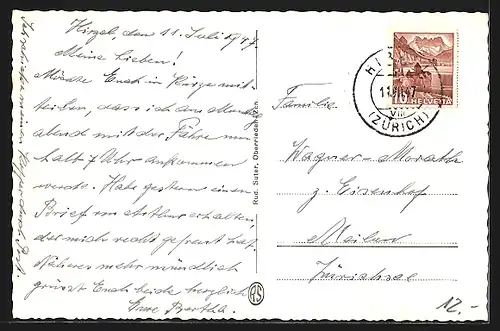 Hirzel, den 11. Juli 1947.
Meine Lieben!
Möchte Euch in Kürze mit-
teilen, dass ich am Montag
abend mit der Fähre um
halb 7 Uhr ankommen
werde. Habe gestern einen
Brief von Arthur erhalten,
der mich recht gefreut hat.
Näheres mehr mündlich
grüsst Euch beide herzlich
Eure Bertha.
Ich schicke meinen Koffer durch Post
Rud. Suter, Oberrieden-Zch.
RS
HIRZEL
11.VII.47
(ZÜRICH)
10 HELVETIA
Familie
Wagner-Morath
z. Eisenhof
Meilen
Zürichsee
12.-